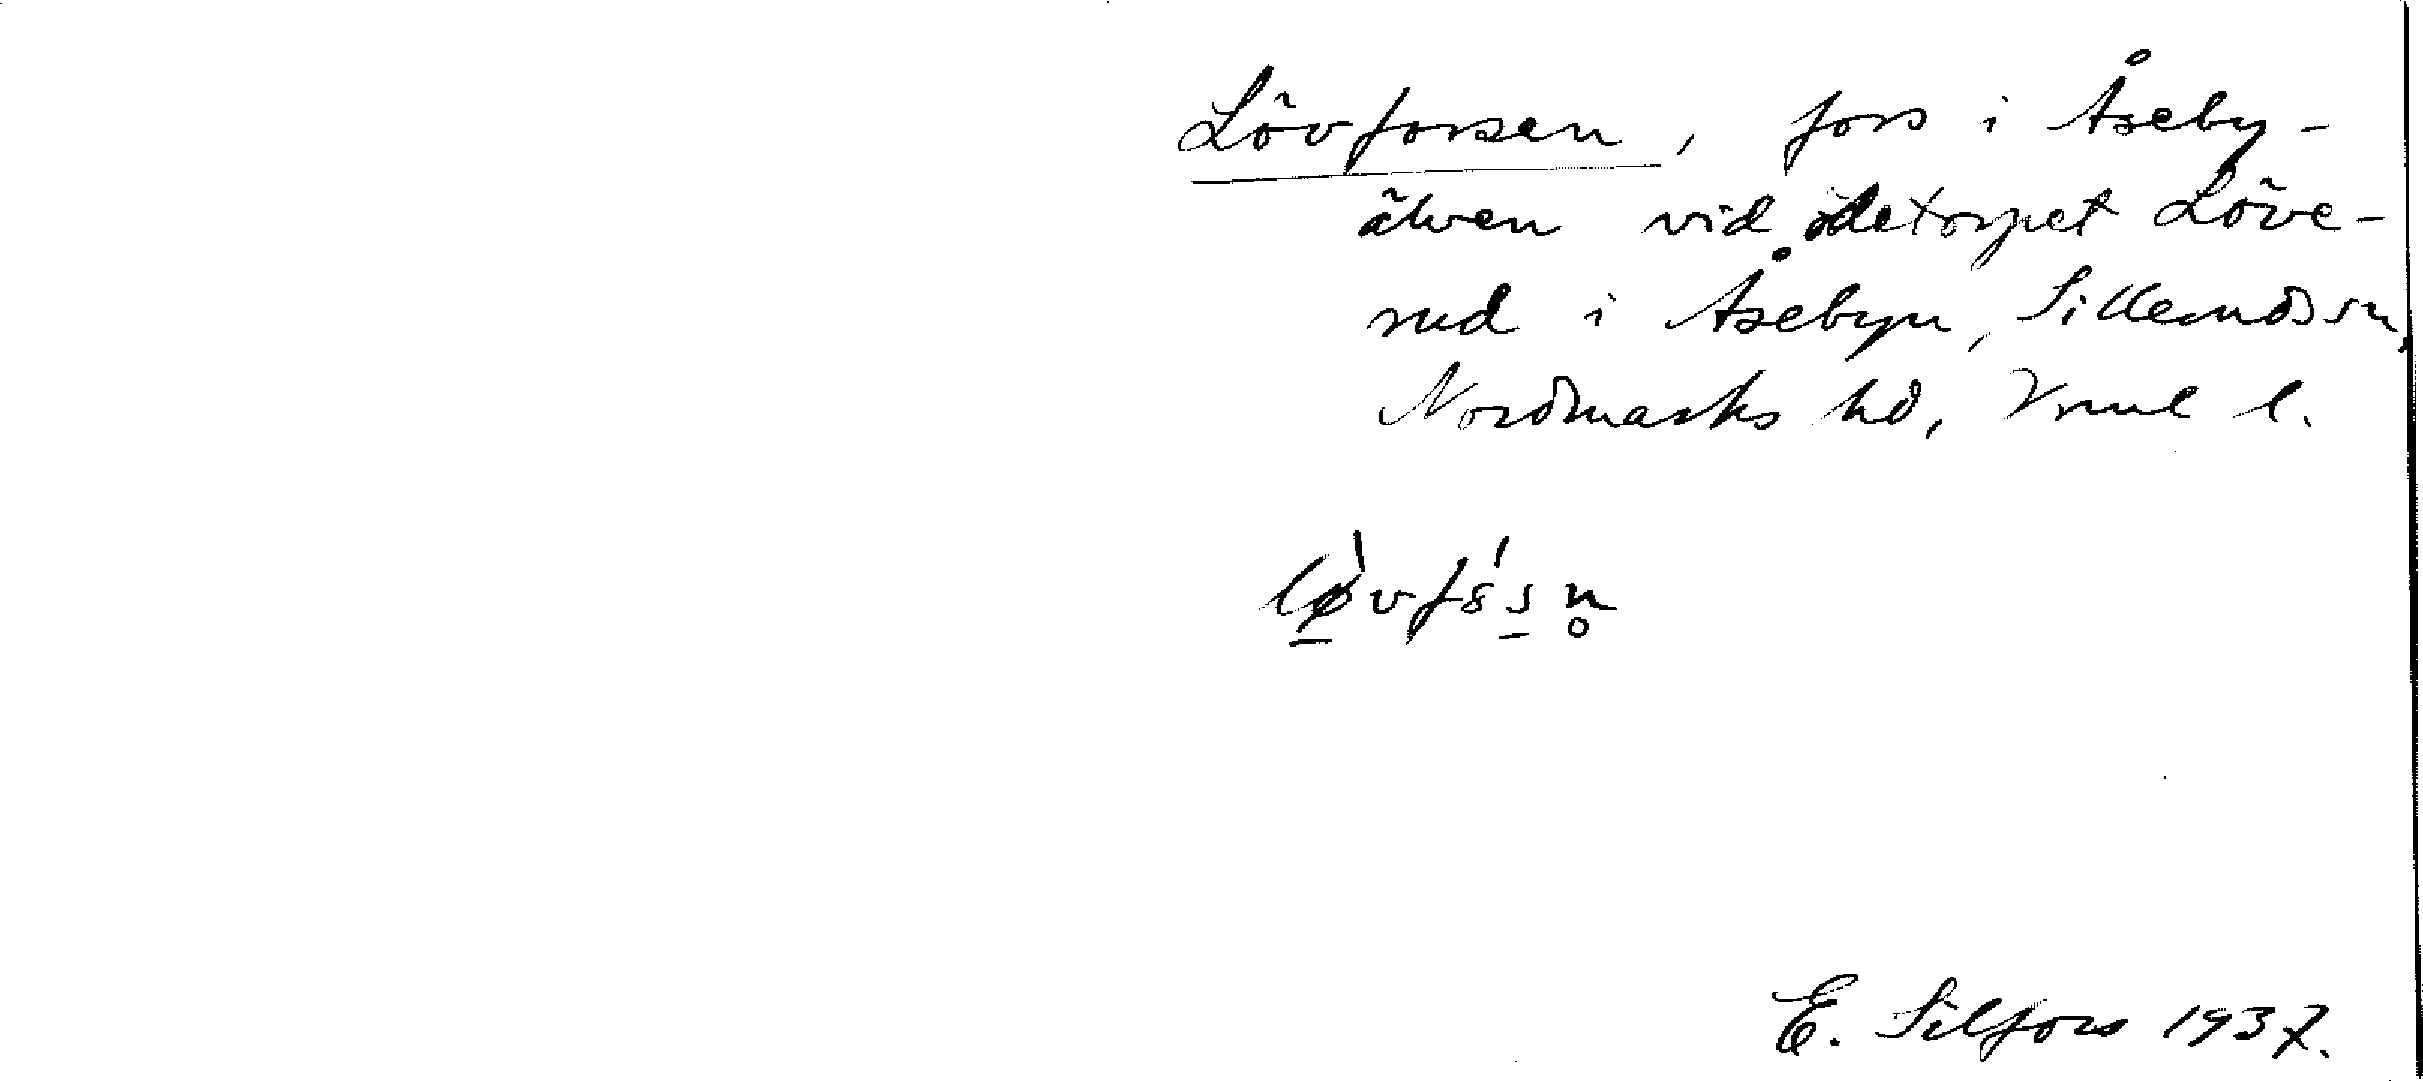 Lövforsen, fors i Åseby-
älven vid ödetorpet Löve-
rud i Åsebyn, Sillerudssn,
Nordmarks hd, Vrml l.
E. Silfors 1937.